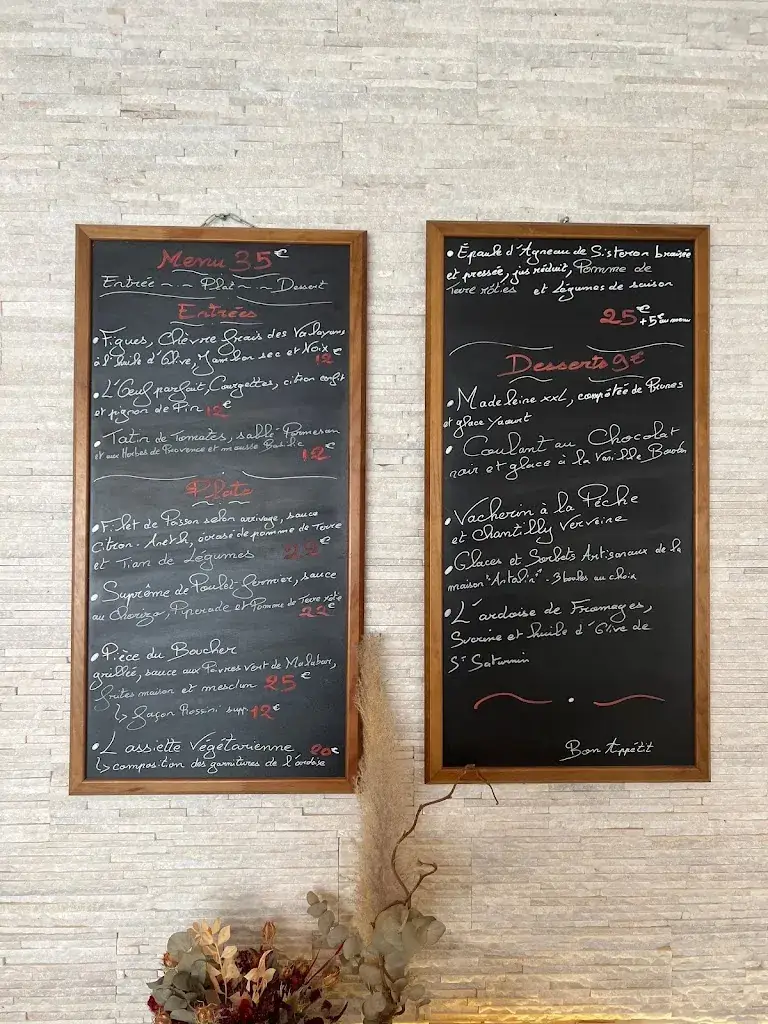 Menu 35 €
Entrée ~ ~ Plat ~ ~ Dessert
Entrées
• Figues, Chèvre frais des Valayans
à l'huile d'Olive, Jambon sec et Noix 12€
• L'Oeuf parfait, Courgettes, citron confit
et pignon de Pin 12€
• Tatin de Tomates, sablé Parmesan
et aux Herbes de Provence et mousse Basilic
12€
Plats
• Filet de Poisson selon arrivage, sauce
Citron-Aneth, écrasé de pomme de Terre
et Tian de Légumes 22€
• Suprême de Poulet fermier, sauce
au Chorizo, Piperade et Pomme de Terre rôtie
22€
• Pièce du Boucher
grillée, sauce aux Poivres Vert de Malabar,
frites maison et mesclun 25€
↳ façon Rossini supp. 12€
• L'assiette Végétarienne 20€
↳ composition des garnitures de l'ardoise
• Épaule d'Agneau de Sisteron braisée
et pressée, jus réduit, Pomme de
Terre rôties et légumes de saison
25€ +5€ au menu
Desserts 9€
• Madeleine XXL, compotée de Prunes
et glace Yaourt
• Coulant au Chocolat
noir et glace à la Vanille Bourbon
• Vacherin à la Pêche
et Chantilly Verveine
• Glaces et Sorbets Artisanaux de la
maison - 3 boules au choix
• L'ardoise de Fromages,
Sucrine et huile d'Olive de
St Saturnin
Bon Appétit